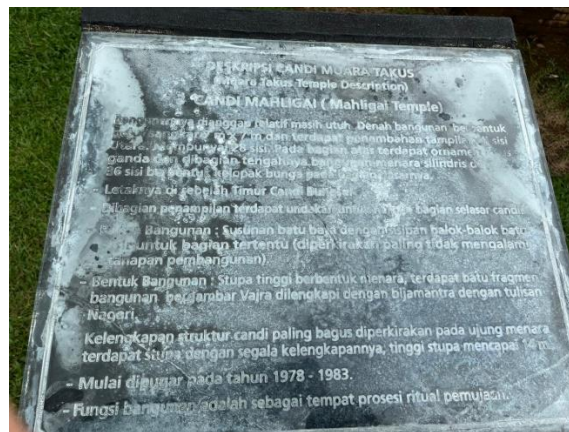 DESKRIPSI CANDI MUARA TAKUS
(Muara Takus Temple Description)
CANDI MAHLIGAI ( Mahligai Temple)
Bangunannya dianggap relatif masih utuh. Denah bangunan berbentuk
m dan terdapat penambahan di sisi
Utara. Mempunyai 28 sisi. Pada bagian alas terdapat ornamen
ganda dan dibagian tengahnya bangunan menara silindris
36 sisi berbentuk kelopak bunga pada bagian dasarnya.
Letaknya di sebelah Timur Candi
Dibagian penampilan terdapat undakan bagian selasar candi.
Bangunan : Susunan batu bata dengan sisipan balok-balok batu
untuk bagian tertentu (diperkirakan paling tidak mengalami
tahapan pembangunan).
- Bentuk Bangunan : Stupa tinggi berbentuk menara, terdapat batu fragmen
bangunan bergambar Vajra dilengkapi dengan bijamantra dengan tulisan
Nageri.
Kelengkapan struktur candi paling bagus diperkirakan pada ujung menara
terdapat stupa dengan segala kelengkapannya, tinggi stupa mencapai 14 m.
- Mulai dipugar pada tahun 1978 - 1983.
- Fungsi bangunan adalah sebagai tempat prosesi ritual pemujaan.